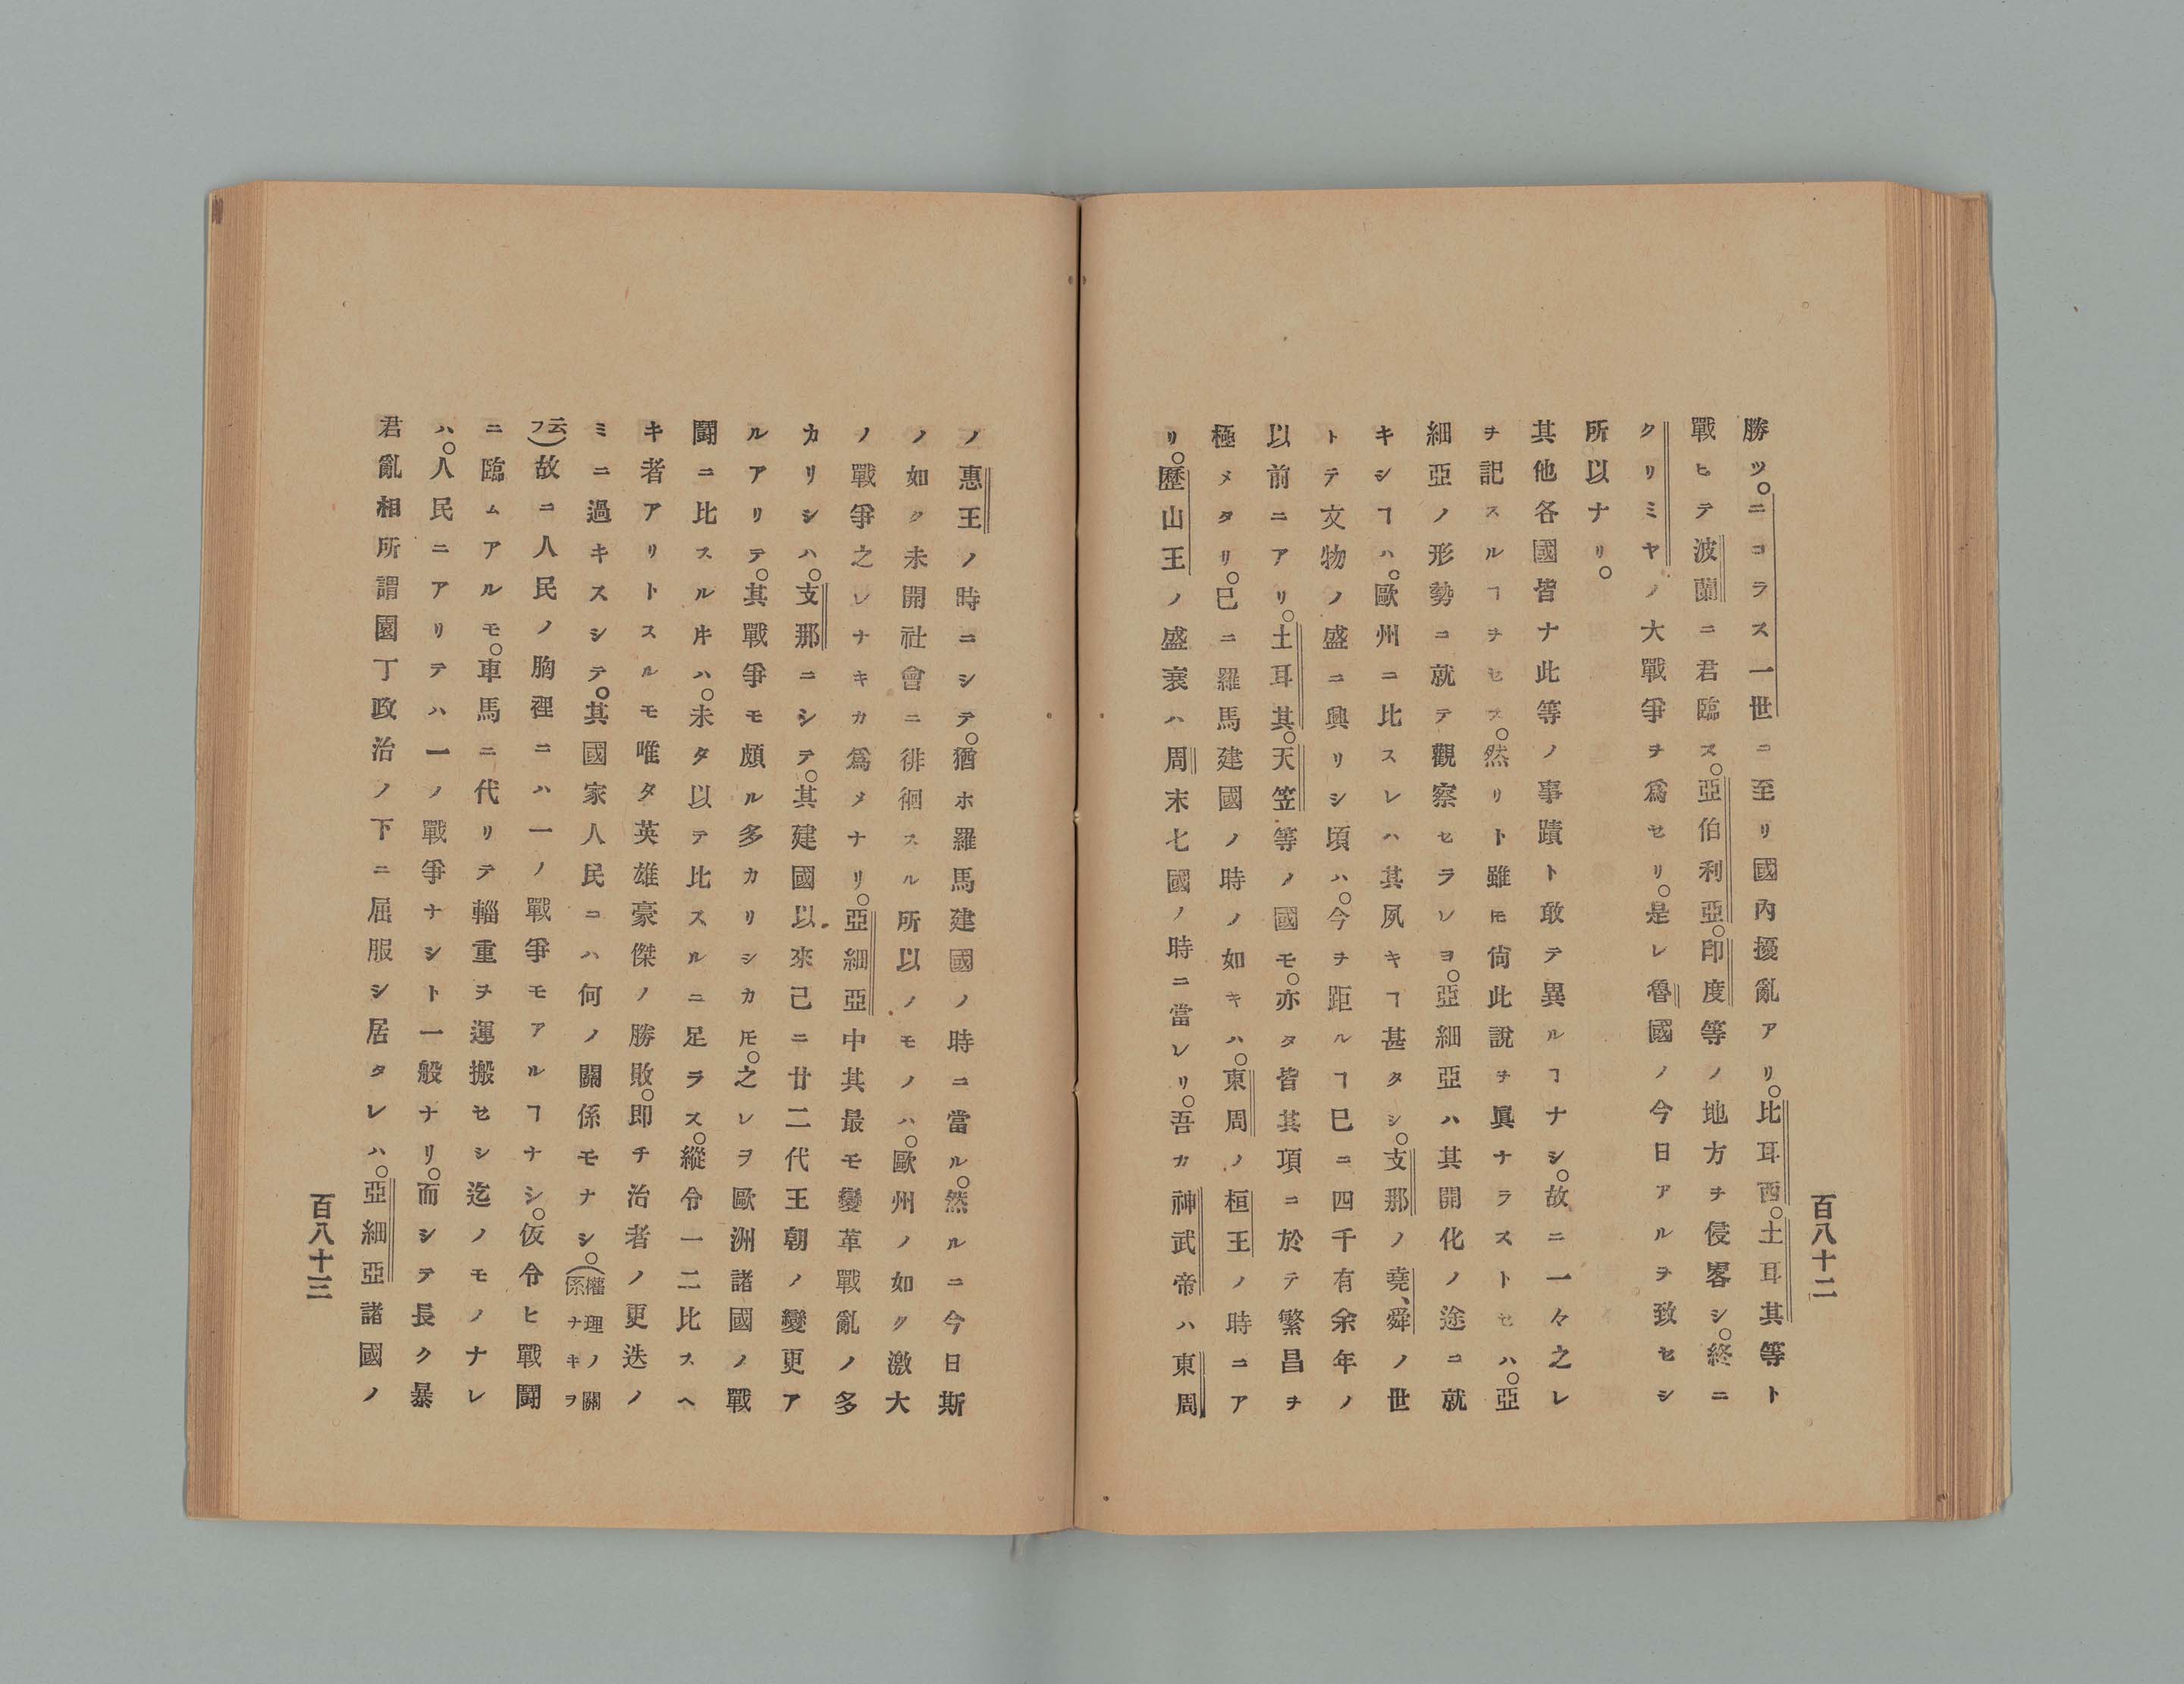 百八十二
勝ツ。ニコラス一世ニ至リ國內擾亂アリ。比耳西。土耳其等ト
戰ヒテ波蘭ニ君臨ス。亞伯利亞。印度等ノ地方ヲ侵畧シ。終ニ
クリミヤノ大戰爭ヲ爲セリ。是レ魯國ノ今日アルヲ致セシ
所以ナリ。
其他各國皆ナ此等ノ事蹟ト敢テ異ルヿナシ。故ニ一々之レ
ヲ記スルヿヲセス。然リト雖𪜈尙此說ヲ眞ナラストセハ。亞
細亞ノ形勢ニ就テ觀察セラレヨ。亞細亞ハ其開化ノ途ニ就
キシヿハ。歐州ニ比スレハ其夙キヿ甚タシ。支那ノ堯、舜ノ世
トテ文物ノ盛ニ興リシ頃ハ。今ヲ距ルヿ巳ニ四千有余年ノ
以前ニアリ。土耳其。天笠等ノ國モ。亦タ皆其項ニ於テ繁昌ヲ
極メタリ。已ニ羅馬建國ノ時ノ如キハ。東周ノ桓王ノ時ニア
リ。歷山王ノ盛衰ハ周末七國ノ時ニ當レリ。吾カ神武帝ハ東周
ノ惠王ノ時ニシテ。猶ホ羅馬建國ノ時ニ當ル。然ルニ今日斯
ノ如ク未開社會ニ徘徊スル所以ノモノハ。歐州ノ如ク激大
ノ戰爭之レナキカ爲メナリ。亞細亞中其最モ變革戰亂ノ多
カリシハ。支那ニシテ。其建國以來己ニ廿二代王朝ノ變更ア
ルアリテ。其戰爭モ頗ル多カリシカ𪜈。之レヲ歐洲諸國ノ戰
鬪ニ比スル片ハ。未タ以テ比スルニ足ラス。縱令一二比スヘ
キ者アリトスルモ唯タ英雄豪傑ノ勝敗。即チ治者ノ更迭ノ
ミニ過キスシテ。其國家人民ニハ何ノ關係モナシ。(權理ノ關係ナキヲ
云フ)故ニ人民ノ胸裡ニハ一ノ戰爭モアルヿナシ。仮令ヒ戰鬪
ニ臨ムアルモ。車馬ニ代リテ輜重ヲ運搬セシ迄ノモノナレ
ハ。人民ニアリテハ一ノ戰爭ナシト一般ナリ。而シテ長ク暴
君亂相所謂園丁政治ノ下ニ屈服シ居タレハ。亞細亞諸國ノ
百八十三